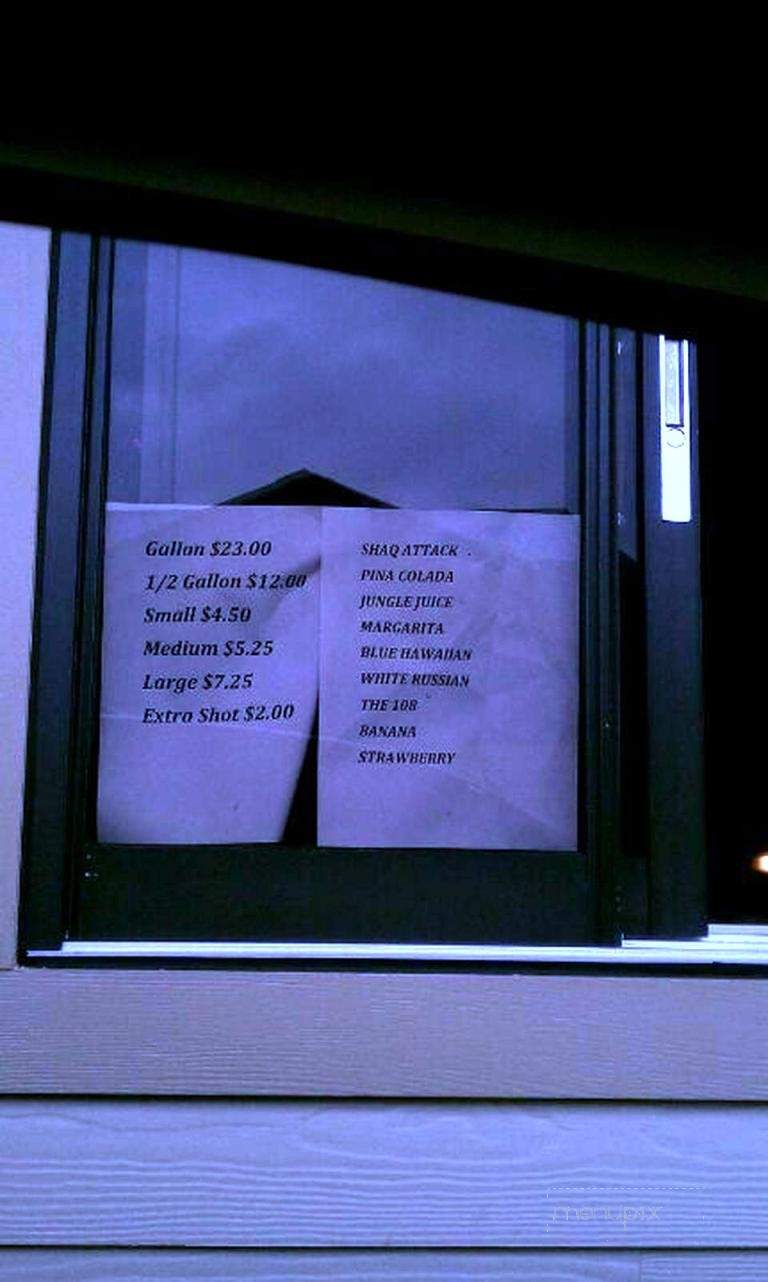 Gallon $23.00
1/2 Gallon $12.00
Small $4.50
Medium $5.25
Large $7.25
Extra Shot $2.00
SHAQ ATTACK .
PINA COLADA
JUNGLE JUICE
MARGARITA
BLUE HAWAIIAN
WHITE RUSSIAN
THE 108
BANANA
STRAWBERRY
menupix